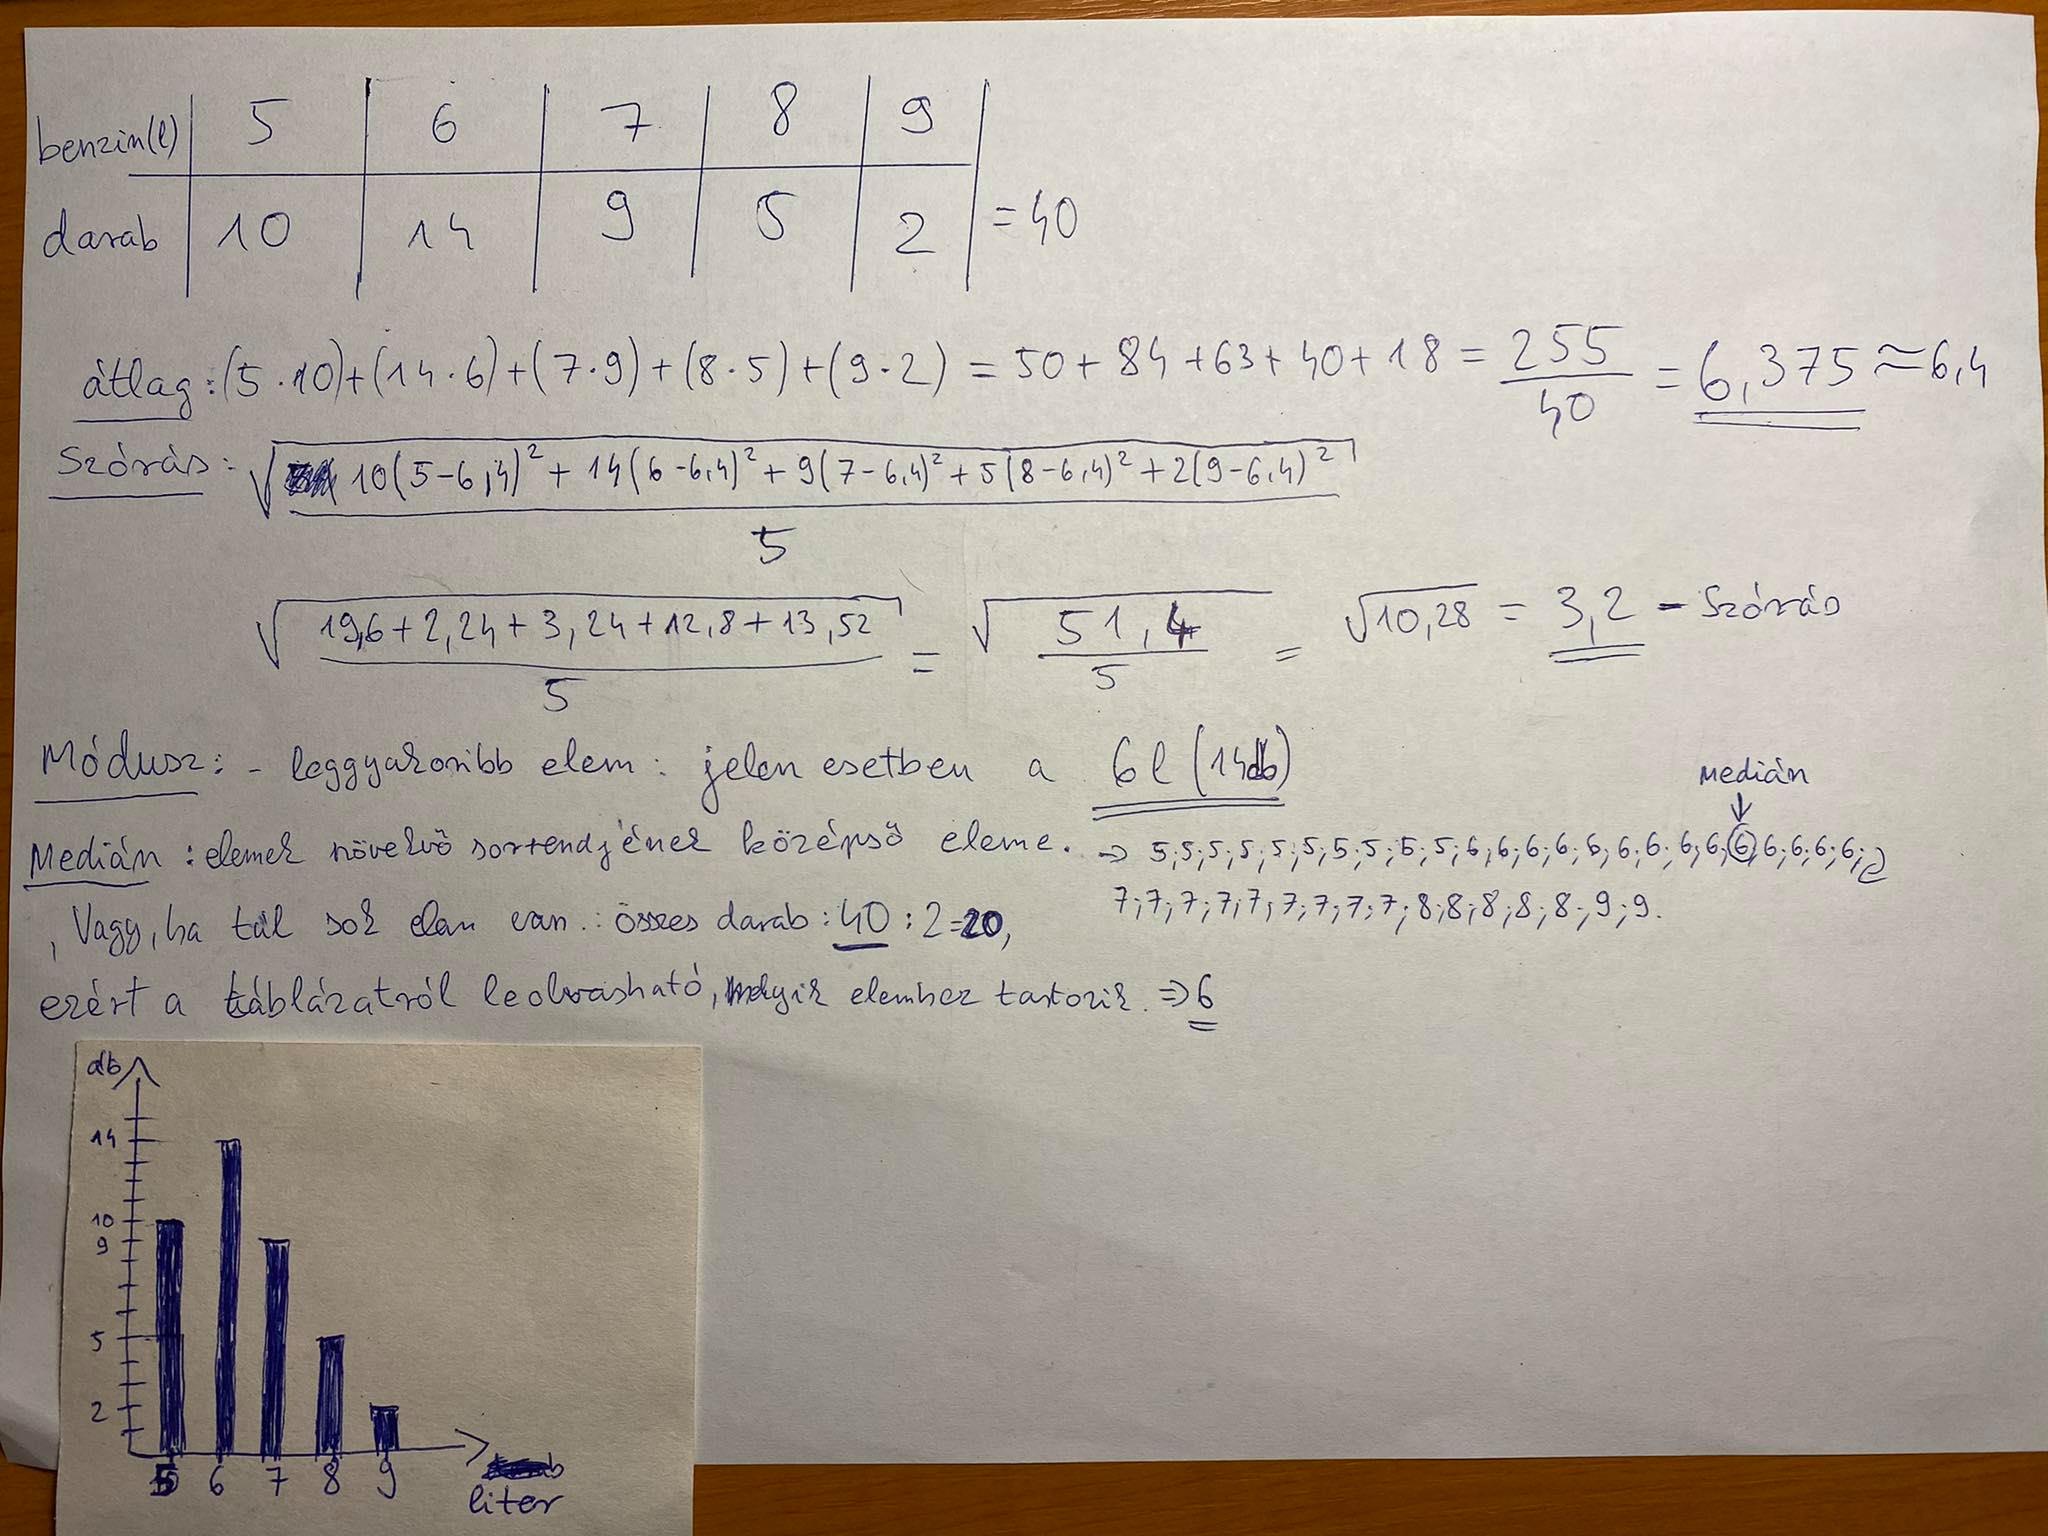 benzin(l) 5 6 7 8 9
darab 10 14 9 5 2 = 40
átlag: (5·10)+(14·6)+(7·9)+(8·5)+(9·2) = 50+84+63+40+18 = 255/40 = 6,375 ≈ 6,4
Szórás: √(10(5-6,4)²+14(6-6,4)²+9(7-6,4)²+5(8-6,4)²+2(9-6,4)²)/5
√(19,6+2,24+3,24+12,8+13,52)/5 = √51,4/5 = √10,28 = 3,2 - Szórás
Módusz: - leggyakoribb elem: jelen esetben a 6l (14db)
Medián
Medián: elemek növekvő sorrendjének középső eleme. ⇒ 5;5;5;5;5;5;5;5;5;5;6;6;6;6;6;6;6;6;6;6;6;6;6;6;
7;7;7;7;7;7;7;7;7;8;8;8;8;8;9;9.
, Vagy, ha túl sok elem van.: összes darab: 40:2=20,
ezért a táblázatról leolvasható, melyik elemhez tartozik. ⇒ 6
db
14
10
9
5
2
5 6 7 8 9
liter